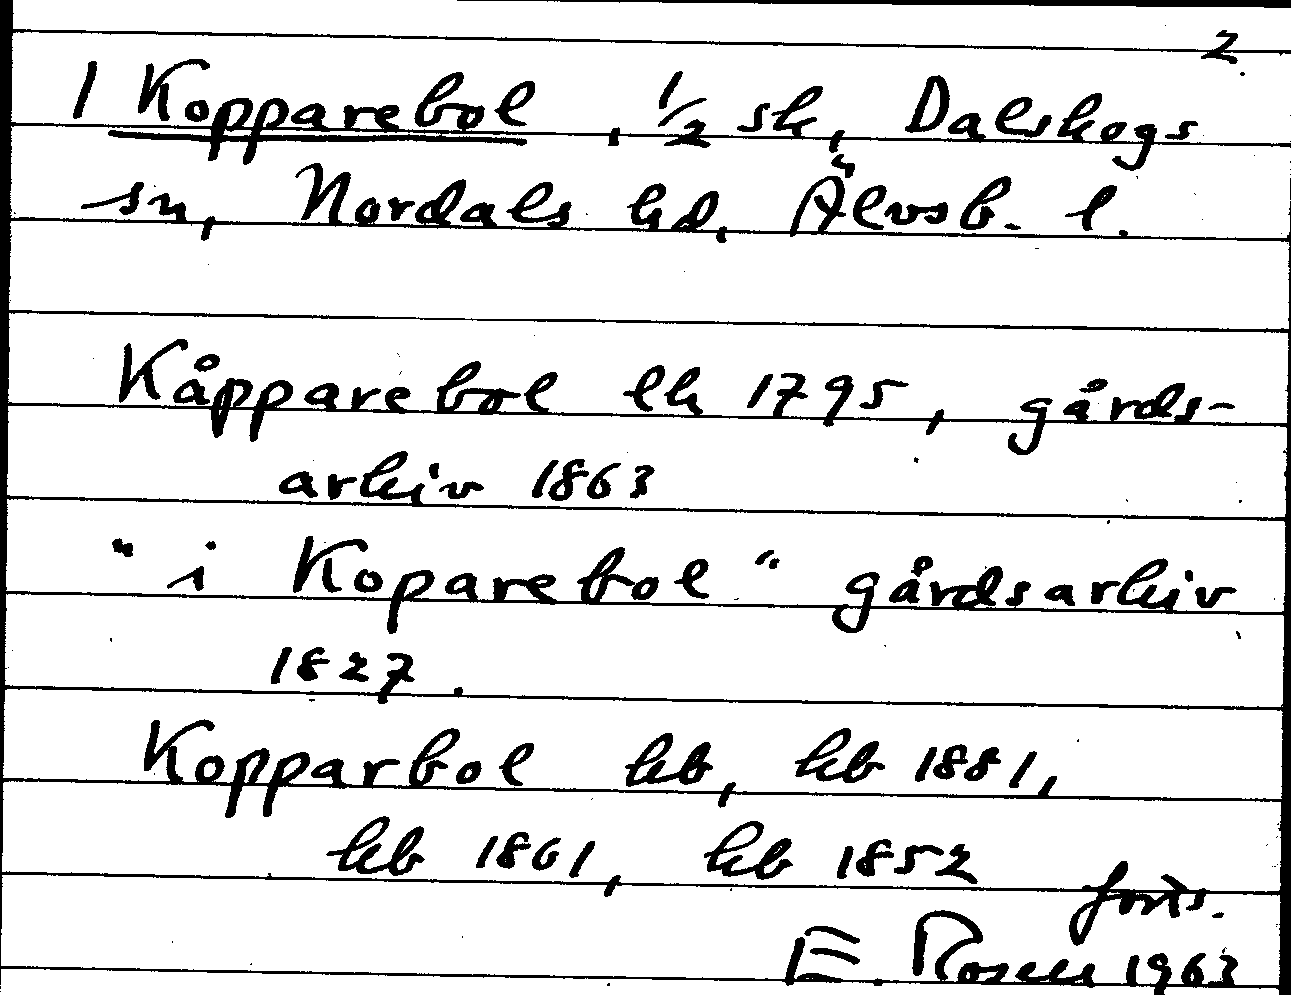 2
1 Kopparebol, 1/2 sk, Dalskogs
sn, Nordals hd, Älvsb. l.
Kåpparebol lk 1795, gårds-
arkiv 1863
"i Koparebol" gårdsarkiv
1827.
Kopparbol kb, kb 1881,
kb 1861, kb 1852 forts.
E. Rosell 1963